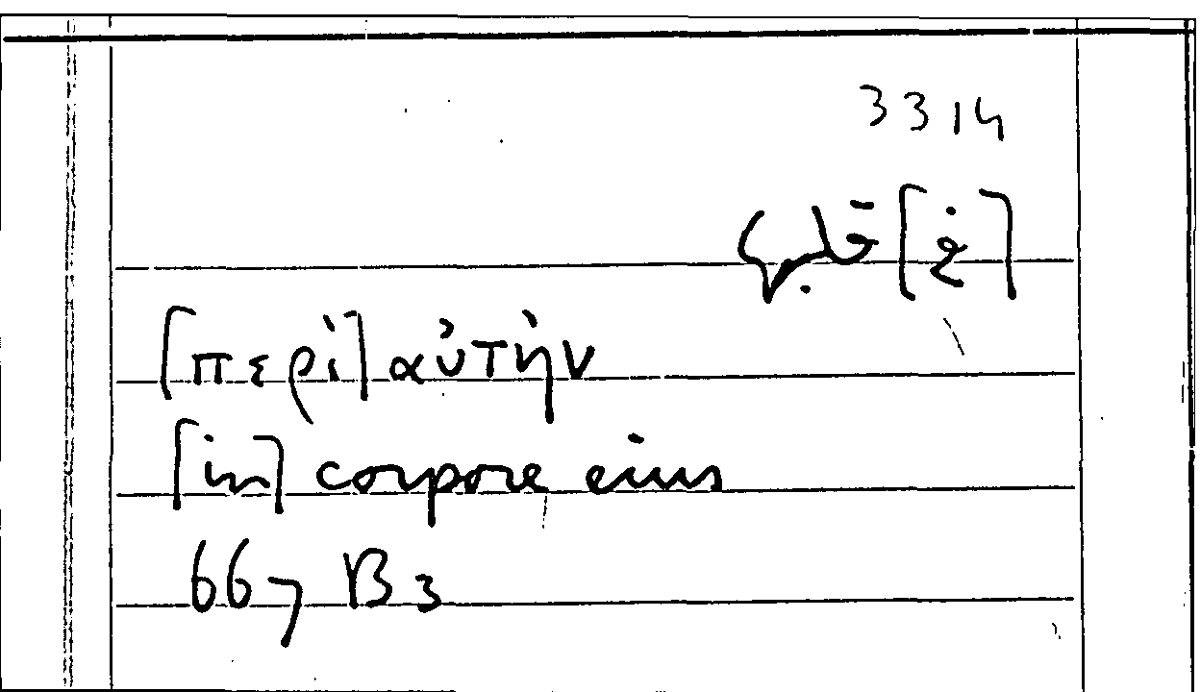 3314
[في] قلبها
[περὶ] αὐτὴν
[in] corpore eius
667 B3